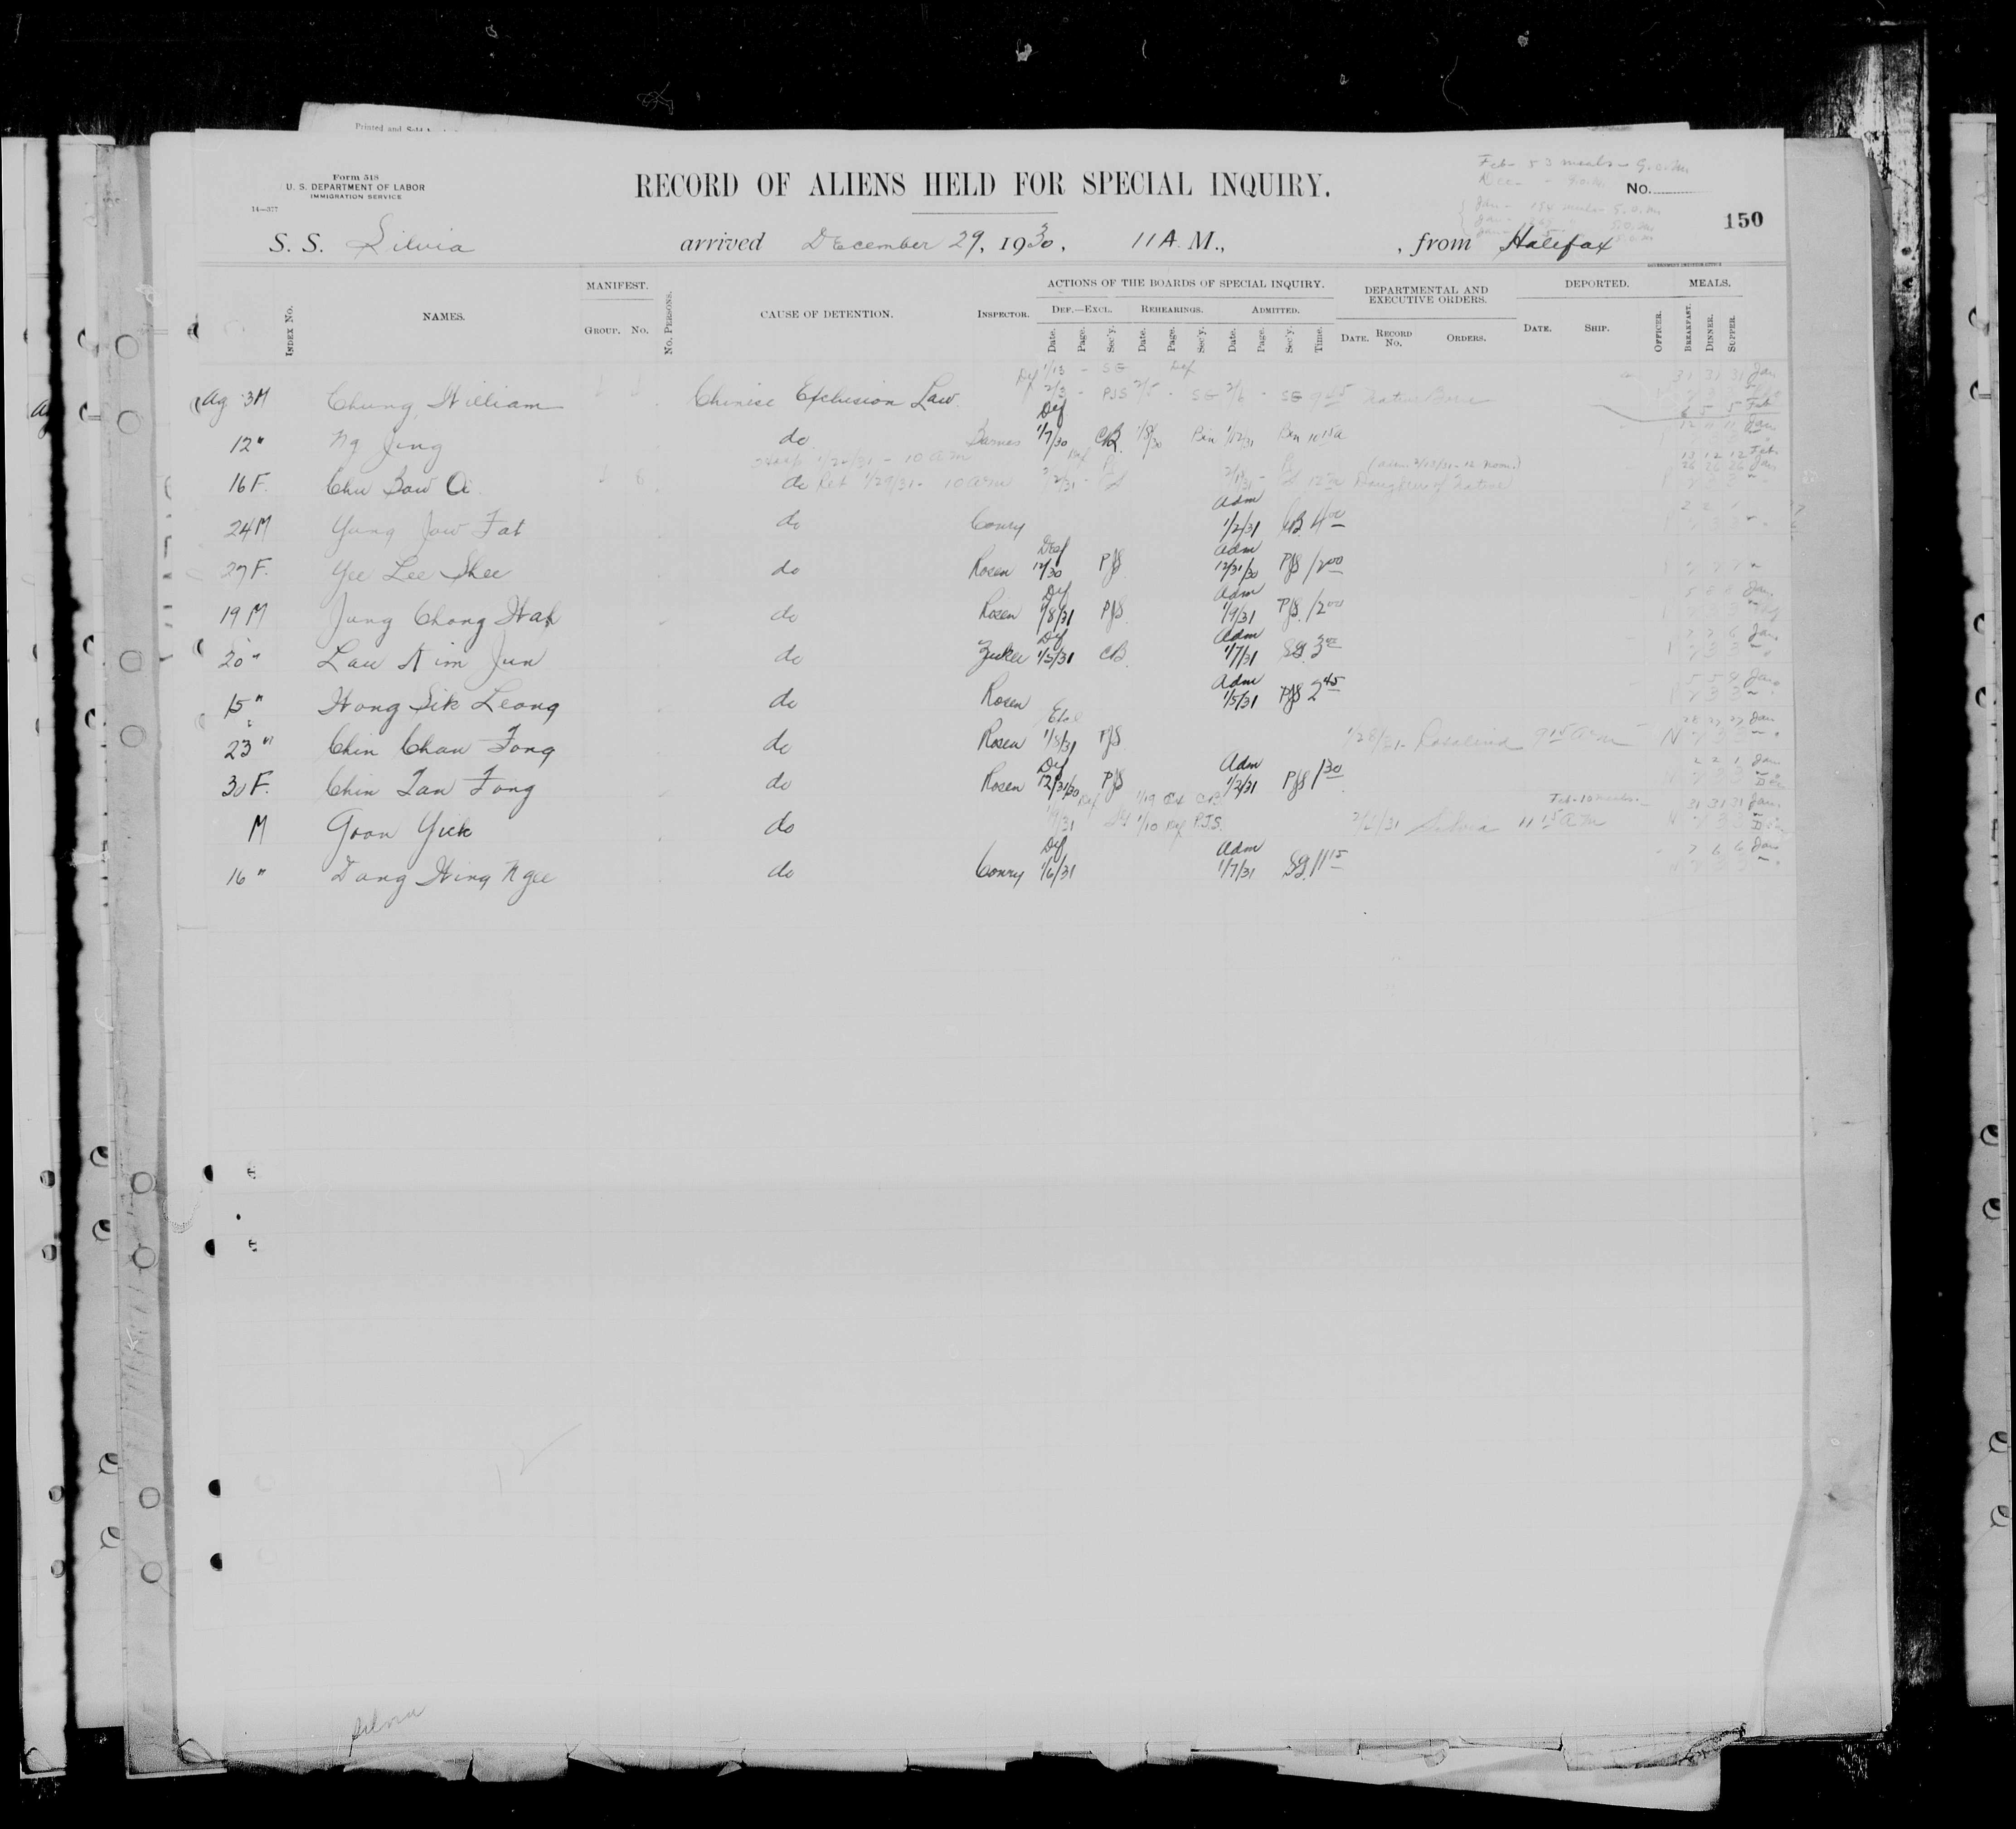 Printed and Sold
Form 518
U. S. DEPARTMENT OF LABOR
IMMIGRATION SERVICE
14—377
RECORD OF ALIENS HELD FOR SPECIAL INQUIRY.
Feb - 53 meals - G.O.M.
No.
150
S. S. Silvia arrived December 29, 1930, 11 A. M., , from Halifax
INDEX No. NAMES. MANIFEST. GROUP. No. No. PERSONS. CAUSE OF DETENTION. INSPECTOR. ACTIONS OF THE BOARDS OF SPECIAL INQUIRY. DEPARTMENTAL AND EXECUTIVE ORDERS. DEPORTED. MEALS.
DEF.—EXCL. REHEARINGS. ADMITTED.
Date. Page. Sec'y. Date. Page. Sec'y. Date. Page. Sec'y. Time. DATE. RECORD No. ORDERS. DATE. SHIP. OFFICER. BREAKFAST. DINNER. SUPPER.
Def 1/13 - SG Def 31 31 31 Jan
Ag 3M Chung, William Chinese Exclusion Law 2/3 - PJS 2/5 - SG 2/6 - SG 9 45 Native Born
6 5 5 Feb
12 " Ng Jing do Barnes Def 1/7/30 CB. 1/8/30 Ben 1/12/31 Ben 10 15a 12 11 11 Jan
1/29/31 - 10 am (adm. 2/13/31 - 12 noon.) 13 12 12 Feb
16 F. Chu Bow A do Ret 1/29/31 - 10 am Daughter of Native 26 26 26 Jan
24 M Yung Jow Fat do Conry Adm 1/2/31 CB. 4 00
27 F. Yee Lee Shee do Rosen Def 12/30 PJS Adm 12/31/30 PJS 12 00
19 M Jung Chong Wah do Rosen Def 1/8/31 PJS Adm 1/9/31 PJS. 12 00
20 " Lau Kim Jun do Zucker Def 1/5/31 CB Adm 1/7/31 SG. 3 00
15 " Wong Sik Leong do Rosen Adm 1/5/31 PJS 2 45
23 " Chin Chan Fong do Rosen Excl 1/8/31 PJS 1/28/31 - Rosalind 9 15 am 28 27 27 Jan
30 F. Chin Tan Fong do Rosen Def 12/31/30 PJS Adm 1/2/31 PJS 1 30 2 2 1 Jan
M Goon Yick do 1/9/31 1/10 Def P.J.S. Silvia 11 15 am Feb - 10 meals 31 31 31 Jan
16 " Dang Wing Ngee do Conry Def 1/6/31 Adm 1/7/31 SG. 11 15 7 6 6 Jan
12
Silvia